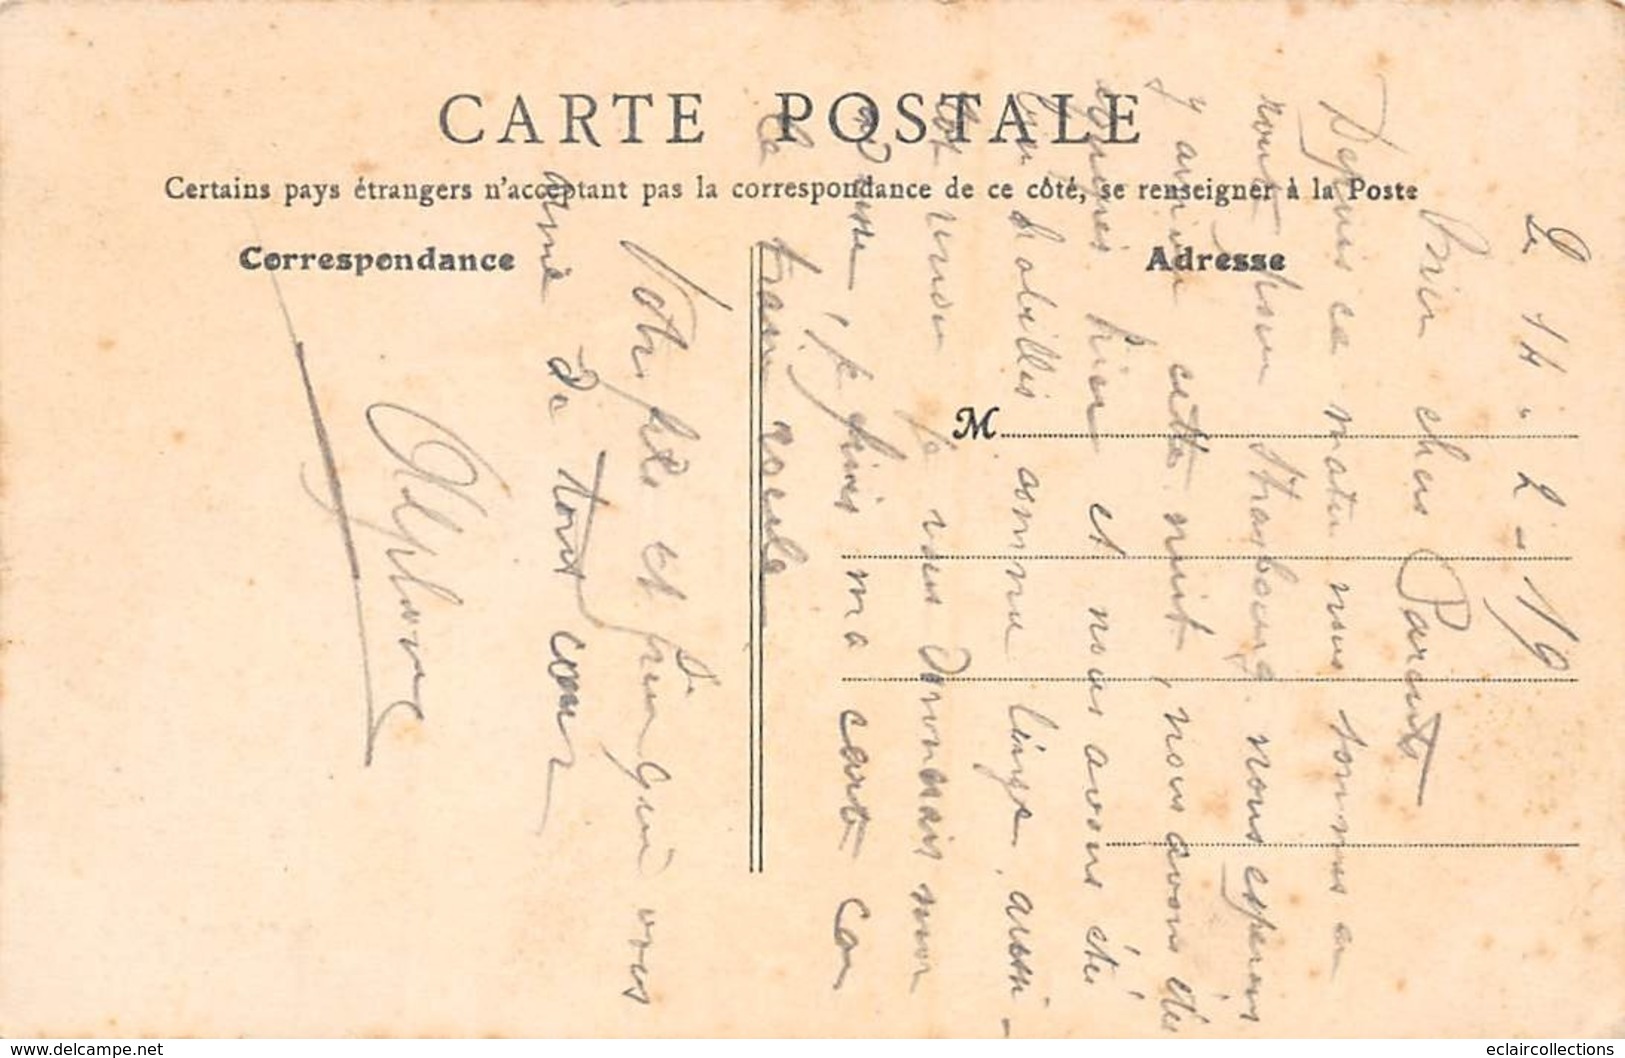 CARTE POSTALE
Certains pays étrangers n'acceptant pas la correspondance de ce côté, se renseigner à la Poste
Correspondance
Adresse
M
Le 14. 2 - 19
Bien chers Parents
Depuis ce matin nous sommes en
route pour Strasbourg. nous esperons
y arriver cette nuit, nous avons étés
hier et nous avons été
habilles comme linge, aussi
je vous donnerais mon
adresse, je finis ma carte car
le train roule
Votre fils et frere qui vous
aime de tout coeur
Alphonse
www.delcampe.net
eclaircollections